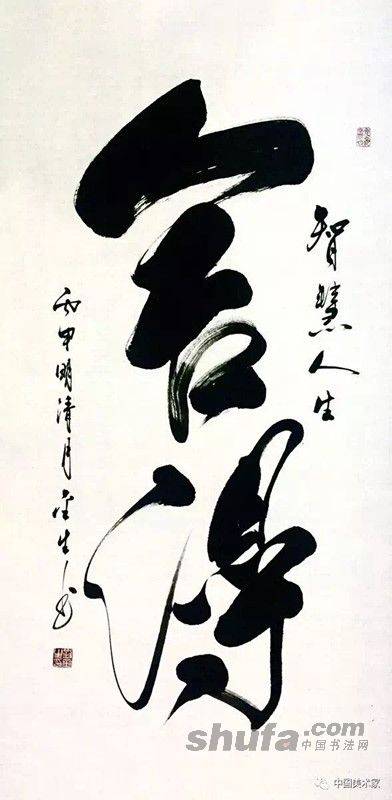 智慧人生
舍得
丙申明清月金生书
shufa.com
中国书法网
中国美术家